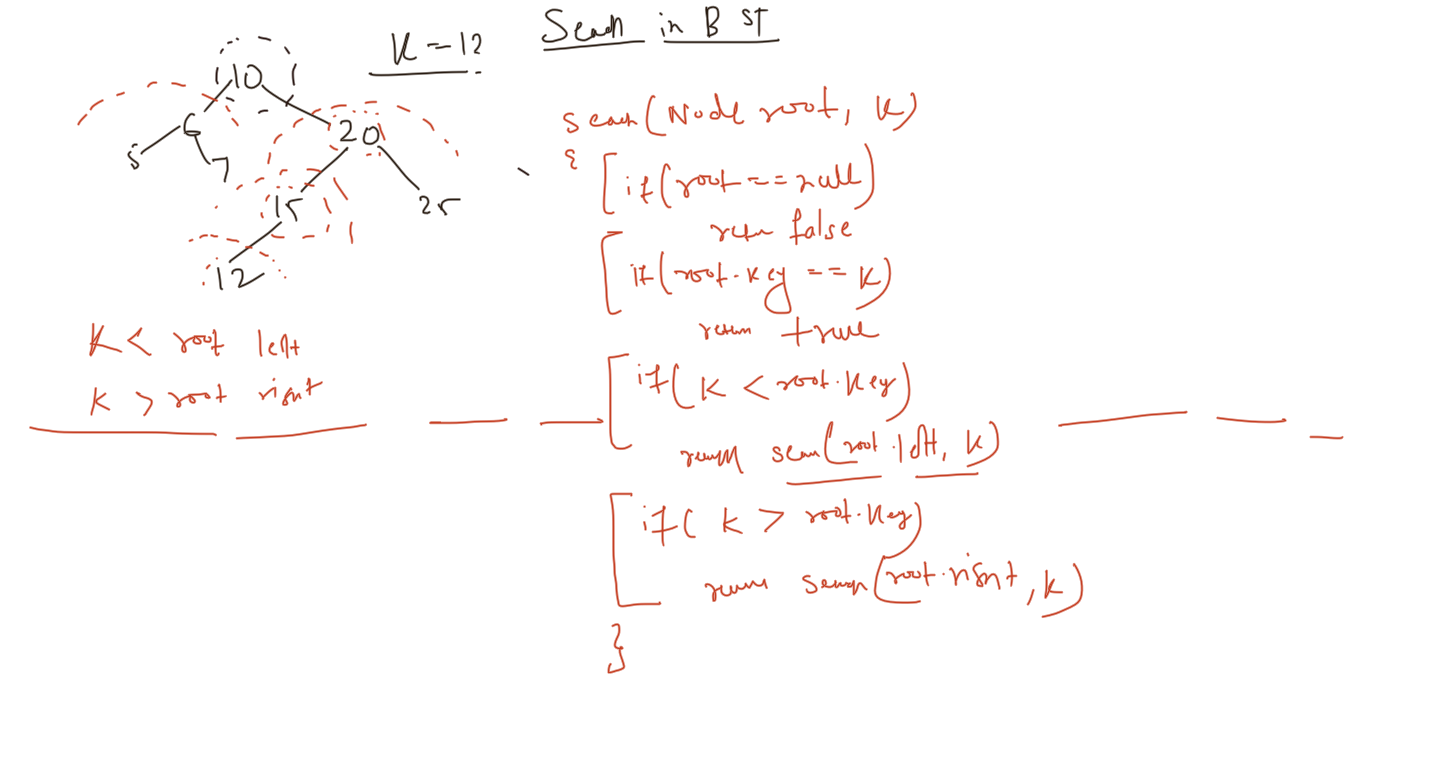 Search in BST
K = 12
10
6
20
5
7
15
25
12
K < root left
K > root right
search(Node root, K)
{
if(root == null)
return false
if(root.key == K)
return true
if( K < root.key)
return search(root.left, K)
if( K > root.key)
return search(root.right, K)
}